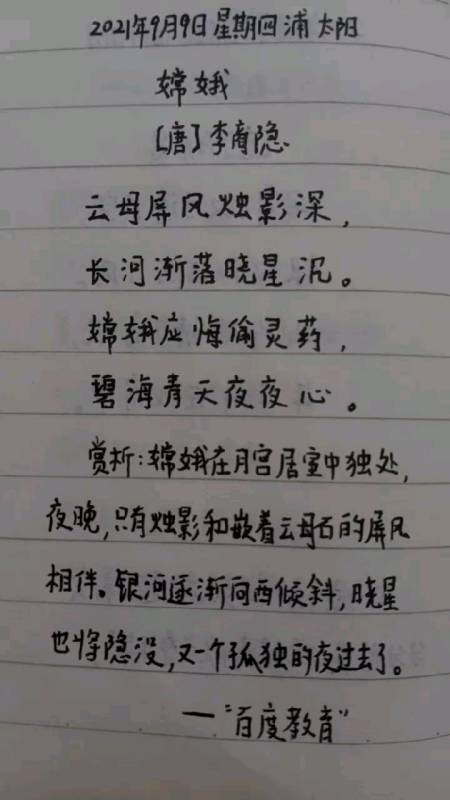 2021年9月9日 星期四 浦 太阳
嫦娥
[唐] 李商隐
云母屏风烛影深，
长河渐落晓星沉。
嫦娥应悔偷灵药，
碧海青天夜夜心。
赏析：嫦娥在月宫居室中独处，
夜晚，只有烛影和嵌着云母石的屏风
相伴。银河逐渐向西倾斜，晓星
也将隐没，又一个孤独的夜过去了。
—“百度教育”